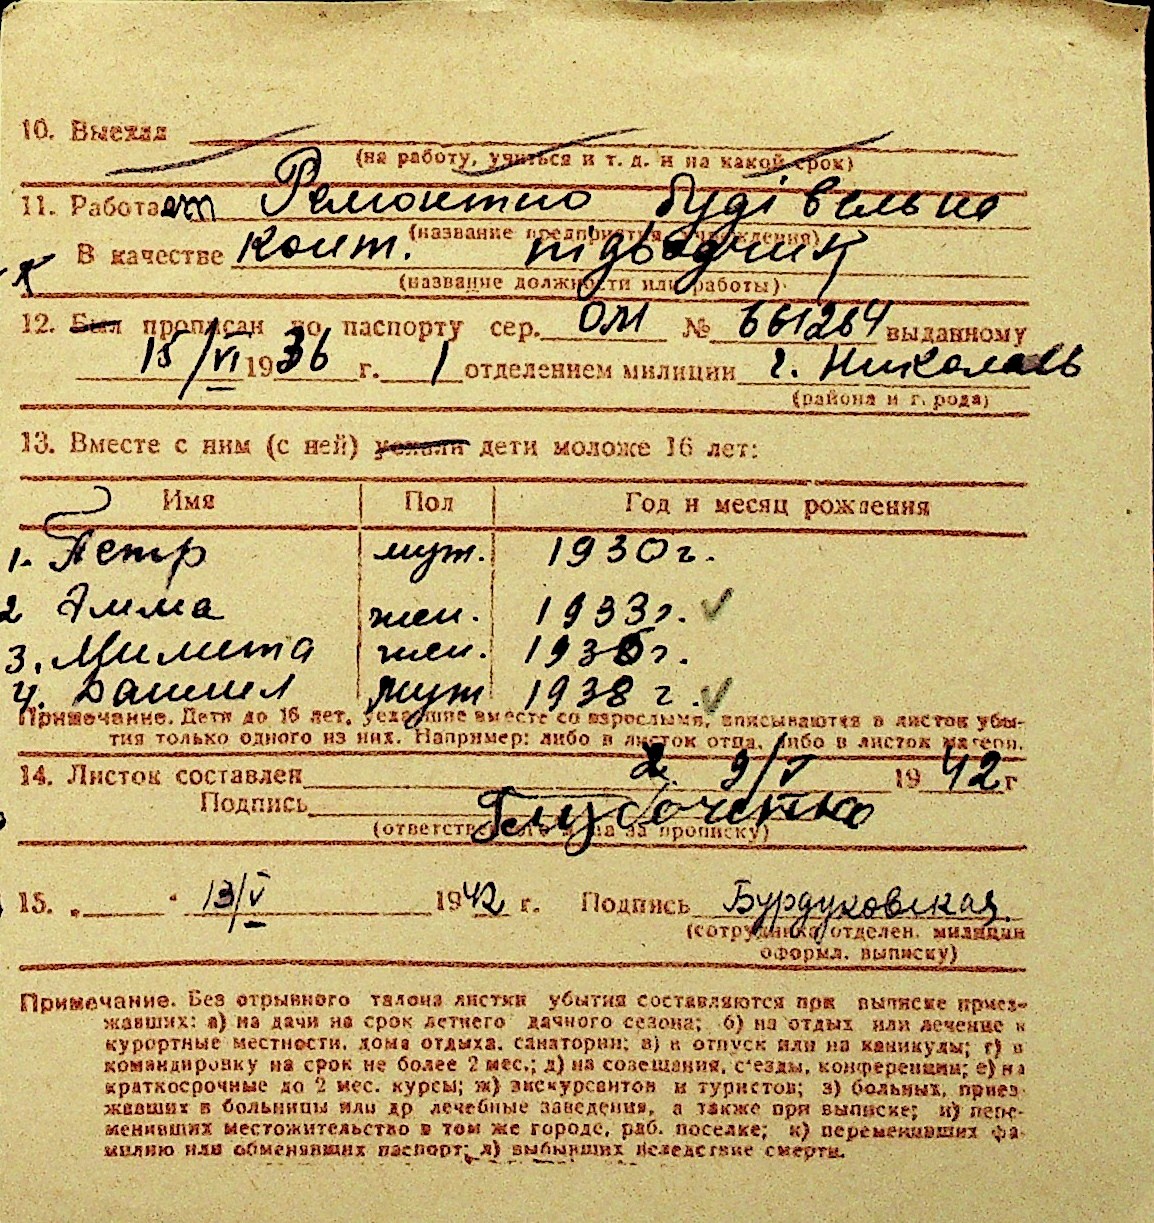 10. Выехал
(на работу, учиться и т. д. и на какой срок)
11. Работает Ремонтно будівельна
(название предприятия, учреждения)
В качестве конт. підводчик
(название должности или работы)
12. Был прописан по паспорту сер. ОМ № 661264 выданному
15/VI 1936 г. 1 отделением милиции г. Николаевъ
(района и г. рода)
13. Вместе с ним (с ней) уехали дети моложе 16 лет:
Имя Пол Год и месяц рождения
1. Петр муж. 1930 г.
2 Эмма жен. 1933 г. ✓
3. жен. 1936 г.
4. Даниил муж 1938 г. ✓
Примечание. Дети до 16 лет, уехавшие вместе со взрослыми, вписываются в листок убы-
тия только одного из них. Например: либо в листок отца, либо в листок матери.
14. Листок составлен 9/V 1942 г
Подпись Глубоченко
(ответственного лица за прописку)
15. „ “ 13/V 1942 г. Подпись Бурдуковская
(сотрудника отделен. милиции
оформл. выписку)
Примечание. Без отрывного талона листки убытия составляются при выписке приез-
жавших: а) на дачи на срок летнего дачного сезона; б) на отдых или лечение в
курортные местности, дома отдыха, санатории; в) в отпуск или на каникулы; г) в
командировку на срок не более 2 мес.; д) на совещания, с'езды, конференции; е) на
краткосрочные до 2 мес. курсы; ж) экскурсантов и туристов; з) больных, приез-
жавших в больницы или др лечебные заведения, а также при выписке; и) пере-
менивших местожительство в том же городе, раб. поселке; к) переменивших фа-
милию или обменявших паспорт; л) выбывших вследствие смерти.